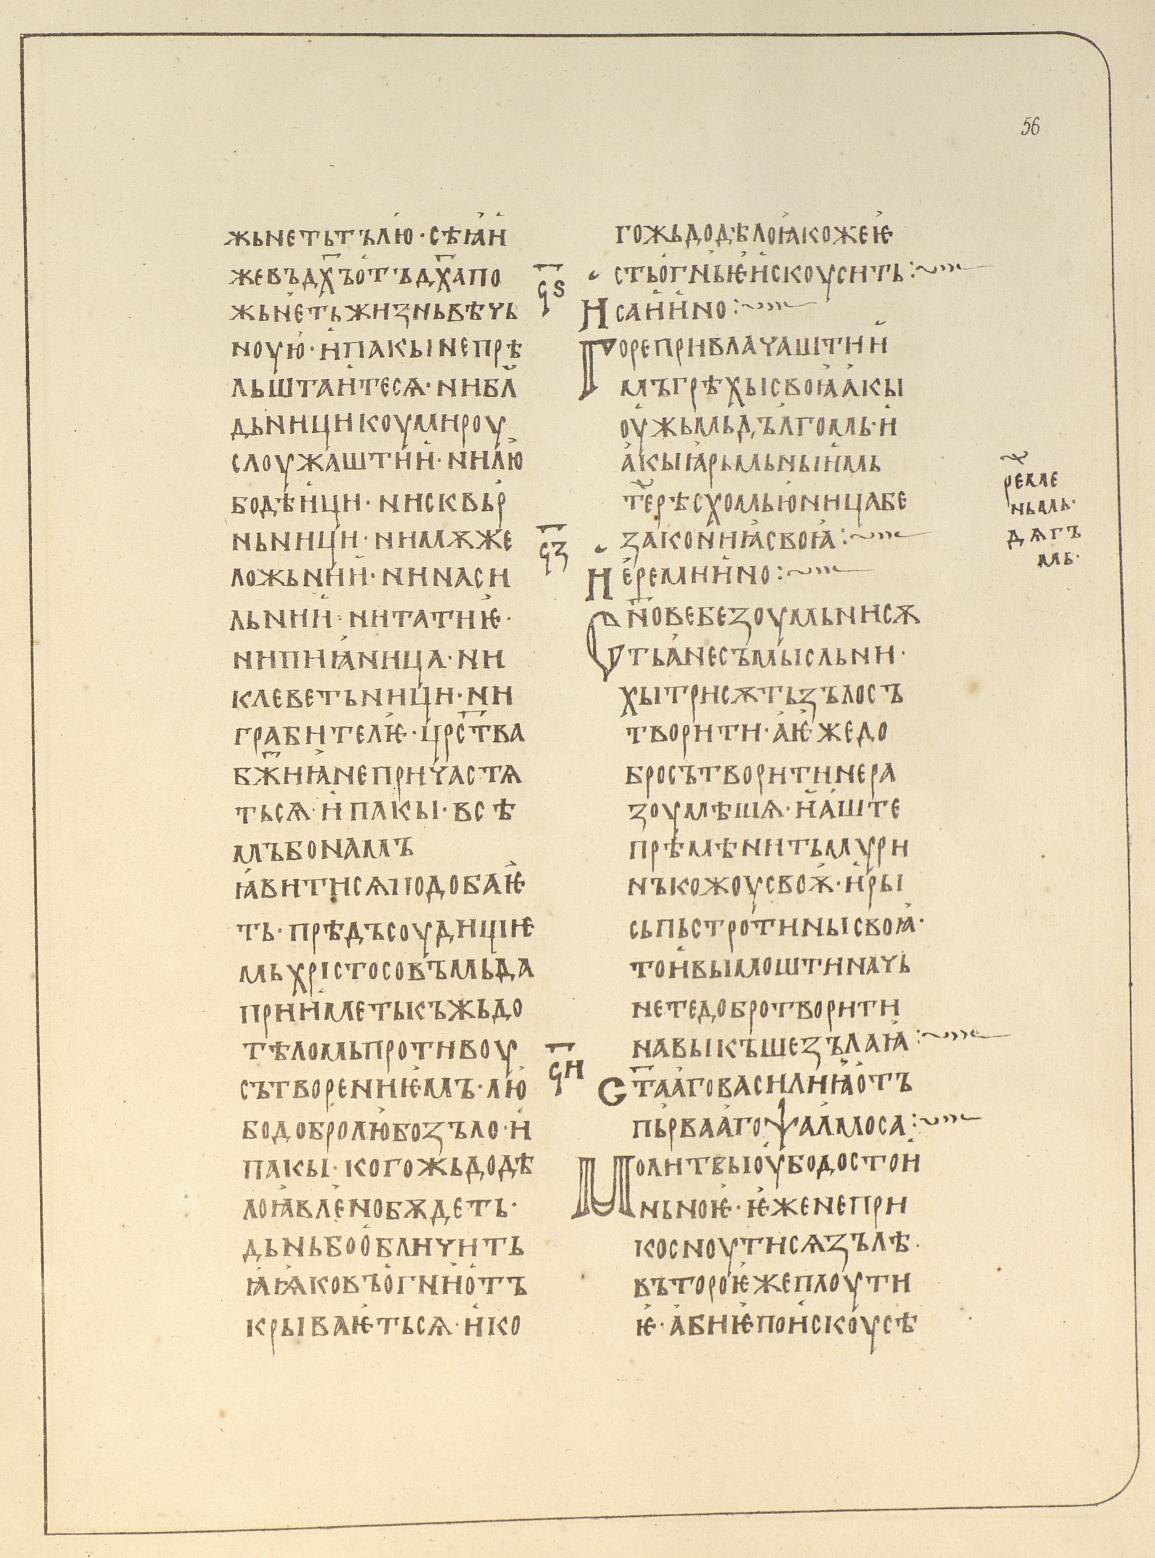 56
жьнетьтълю · сѣꙗи
жевъдх҃ъотъдх҃апо
жьнетьжизньвѣчь
ноую · ипакыинепрѣ
льштаитесѧ · нибл
дьницикоумироу
слоужаштии · нилю
бодѣици · нискврь
ньници · нимѫже
ложьнии · нинаси
льнии · нитатиѥ ·
нипиꙗница · ни
клеветьници · ни
грабителѥ · црс҃тва
бж҃иꙗнепричастѧ
тьсѧ · ипакы · всѣ
мъбонамъ
ꙗвитисѧподобаѥ
ть · прѣдъсоудищиѥ
мьхрістосовъмьда
прииметькъжьдо
тѣломьпротивоу
сътворениѥмъ · лю
бодобролюбозъло · и
пакы · когожьдодѣ
лоꙗвленобѫдеть ·
дьньбообличить
ꙗꙗковъогниотъ
крываѥтьсѧ · ико
гожьдодѣлоꙗкожеѥ
ч҃ѕ стьогньѥискоусить :
Исаиино :
Горепривлачаштии
мъгрѣхысвоꙗакы
оужьмьдългомь · и
акыꙗрьмьныимь
терѣсхомьюницабе
ременьмь ·
дѧгъ
мь ·
закониꙗсвоꙗ :
ч҃з Иеремиино :
Сн҃овебезоумьнисѫ
тьанесъмысльни ·
хытрисѫтьзълосъ
творити · аѥжедо
бросътворитинера
зоумѣшѧ · иаште
прѣмѣнитьмури
нъкожоусвоѭ · иры
сьпьстротинысвоꙗ ·
тоивымоштиначь
нетедобротворити
навыкъшезълаꙗ :
ч҃и Ст҃аагoвасилиꙗотъ
пьрваагоѱалмоса :
Молитвыоубодостои
ньноѥ · ѥженепри
косноутисѧзълѣ ·
вътороѥжеплоути
ѥ · абиѥпоискоусѣ